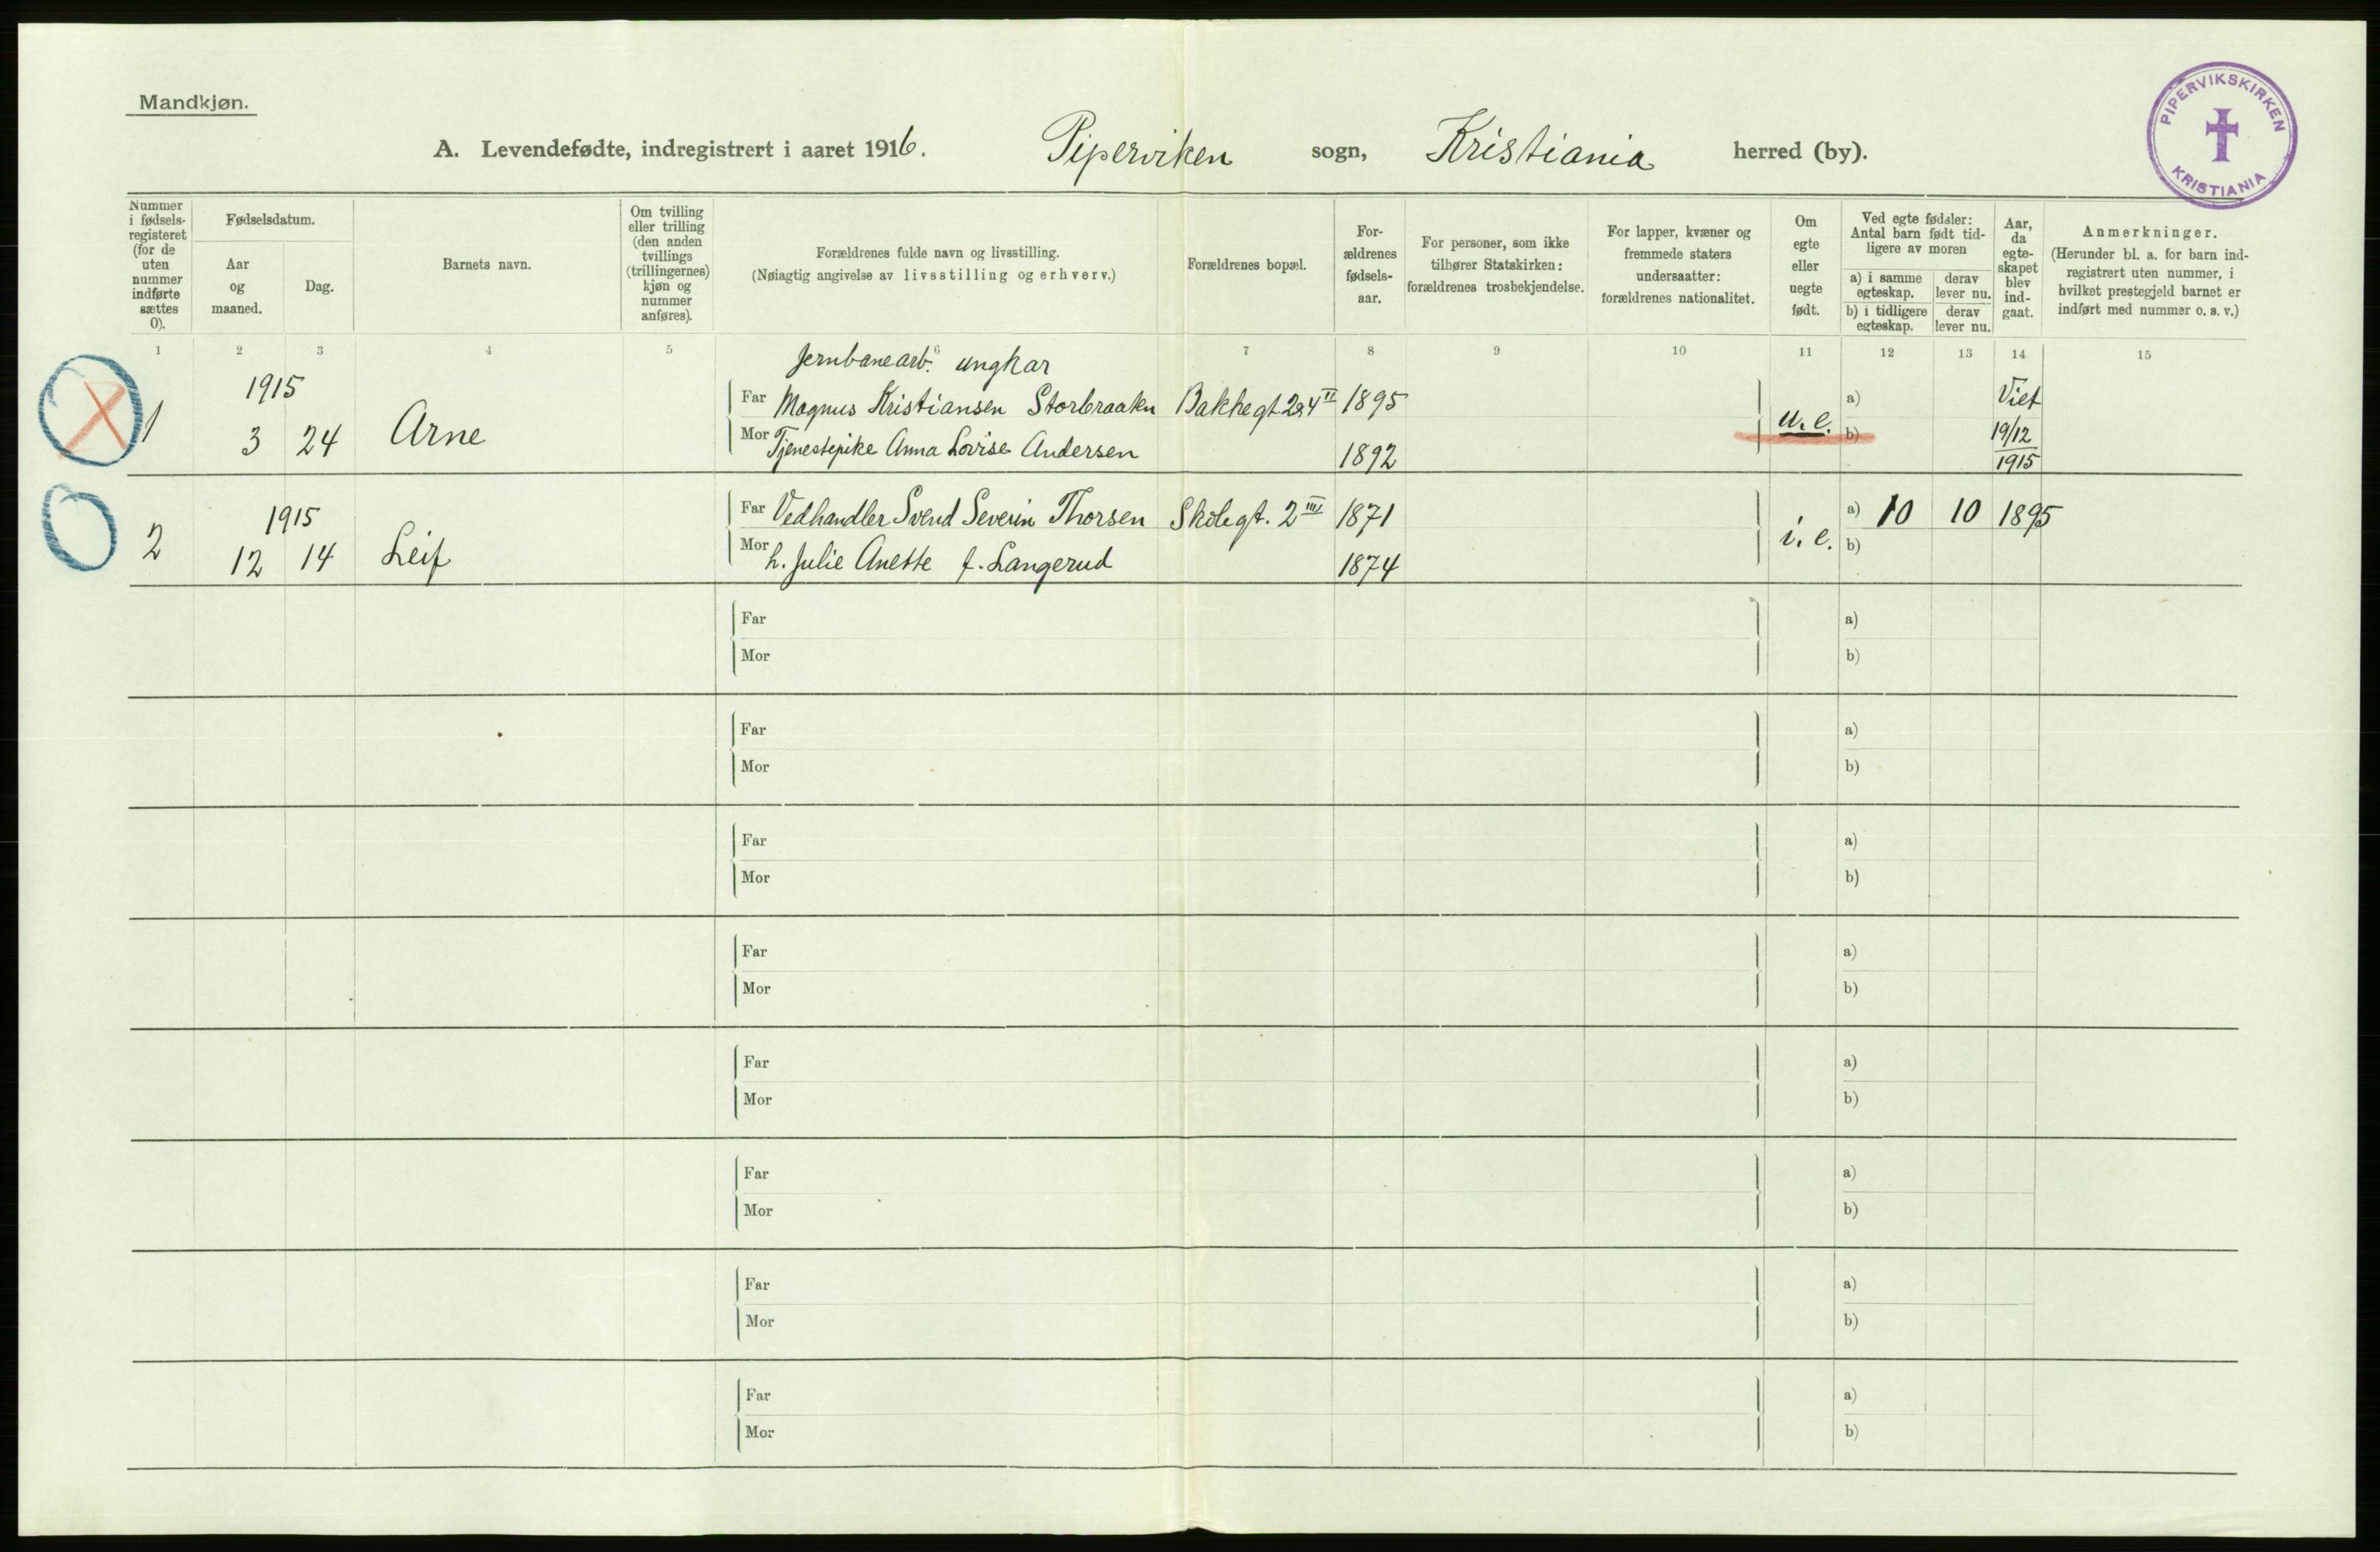 Mandkjøn.
PIPERVIKSKIRKEN
KRISTIANIA
A. Levendefødte, indregistrert i aaret 1916. Piperviken sogn, Kristiania herred (by).
Nummer
i fødsels-
registeret
(for de
uten
nummer
indførte
sættes
0).
Fødselsdatum.
Aar
og
maaned.
Dag.
Barnets navn.
Om tvilling
eller trilling
(den anden
tvillings
(trillingernes)
kjøn og
nummer
anføres).
Forældrenes fulde navn og livsstilling.
(Nøiagtig angivelse av livsstilling og erhverv.)
Forældrenes bopæl.
For-
ældrenes
fødsels-
aar.
For personer, som ikke
tilhører Statskirken:
forældrenes trosbekjendelse.
For lapper, kvæner og
fremmede staters
undersaatter:
forældrenes nationalitet.
Om
egte
eller
uegte
født.
Ved egte fødsler:
Antal barn født tid-
ligere av moren
a) i samme
egteskap.
derav
lever nu.
b) i tidligere
egteskap.
derav
lever nu.
Aar,
da
egte-
skapet
blev
ind-
gaat.
Anmerkninger.
(Herunder bl. a. for barn ind-
registrert uten nummer, i
hvilket prestegjeld barnet er
indført med nummer o. s. v.)
1 2 3 4 5 6 7 8 9 10 11 12 13 14 15
Jernbanearb. ungkar
1915
Far Magnus Kristiansen Storbraaten Bakkegt. 24 II 1895 a) Viet
1 3 24 Arne u. e. b) 19/12
Mor Tjenestepike Anna Lovise Andersen 1892 1915
1915
Far Vedhandler Svend Severin Thorsen Skolegt. 2 III 1871 a) 10 10 1895
2 12 14 Leif i. e. b)
Mor h. Julie Anette f. Langerud 1874
Far a)
Mor b)
Far a)
Mor b)
Far a)
Mor b)
Far a)
Mor b)
Far a)
Mor b)
Far a)
Mor b)
Far a)
Mor b)
Far a)
Mor b)